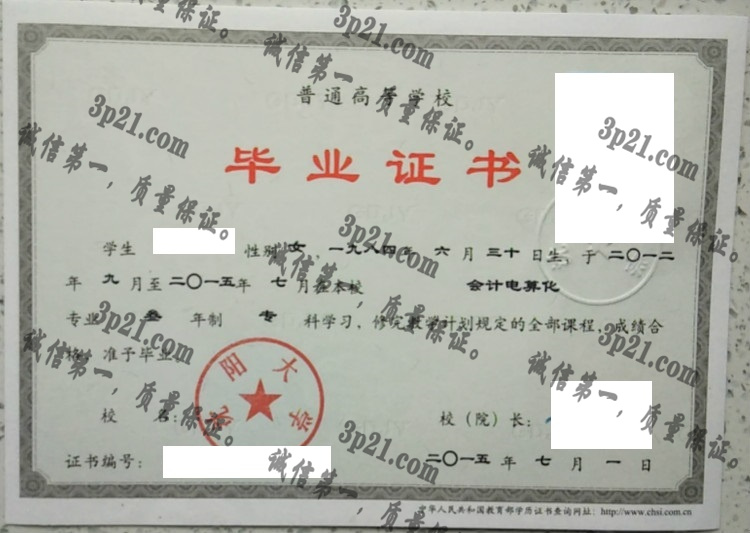 普通高等学校
毕业证书
学生 性别 女 一九八四年 六月三十日生，于二〇一二
年 九月至二〇一五年 七月在本校 会计电算化
专业 叁 年制 专 科学习，修完教学计划规定的全部课程，成绩合
格，准予毕业。
阳大学
校 名： 校（院）长：
证书编号： 二〇一五年 七月 一日
中华人民共和国教育部学历证书查询网址：http://www.chsi.com.cn
3p21.com
诚信第一，质量保证。
3p21.com
诚信第一，质量保证。
3p21.com
诚信第一，质量保证。
3p21.com
诚信第一，质量保证。
3p21.com
诚信第一，质量保证。
3p21.com
诚信第一，质量保证。
3p21.com
诚信第一，质量保证。
3p21.com
诚信第一，质量保证。